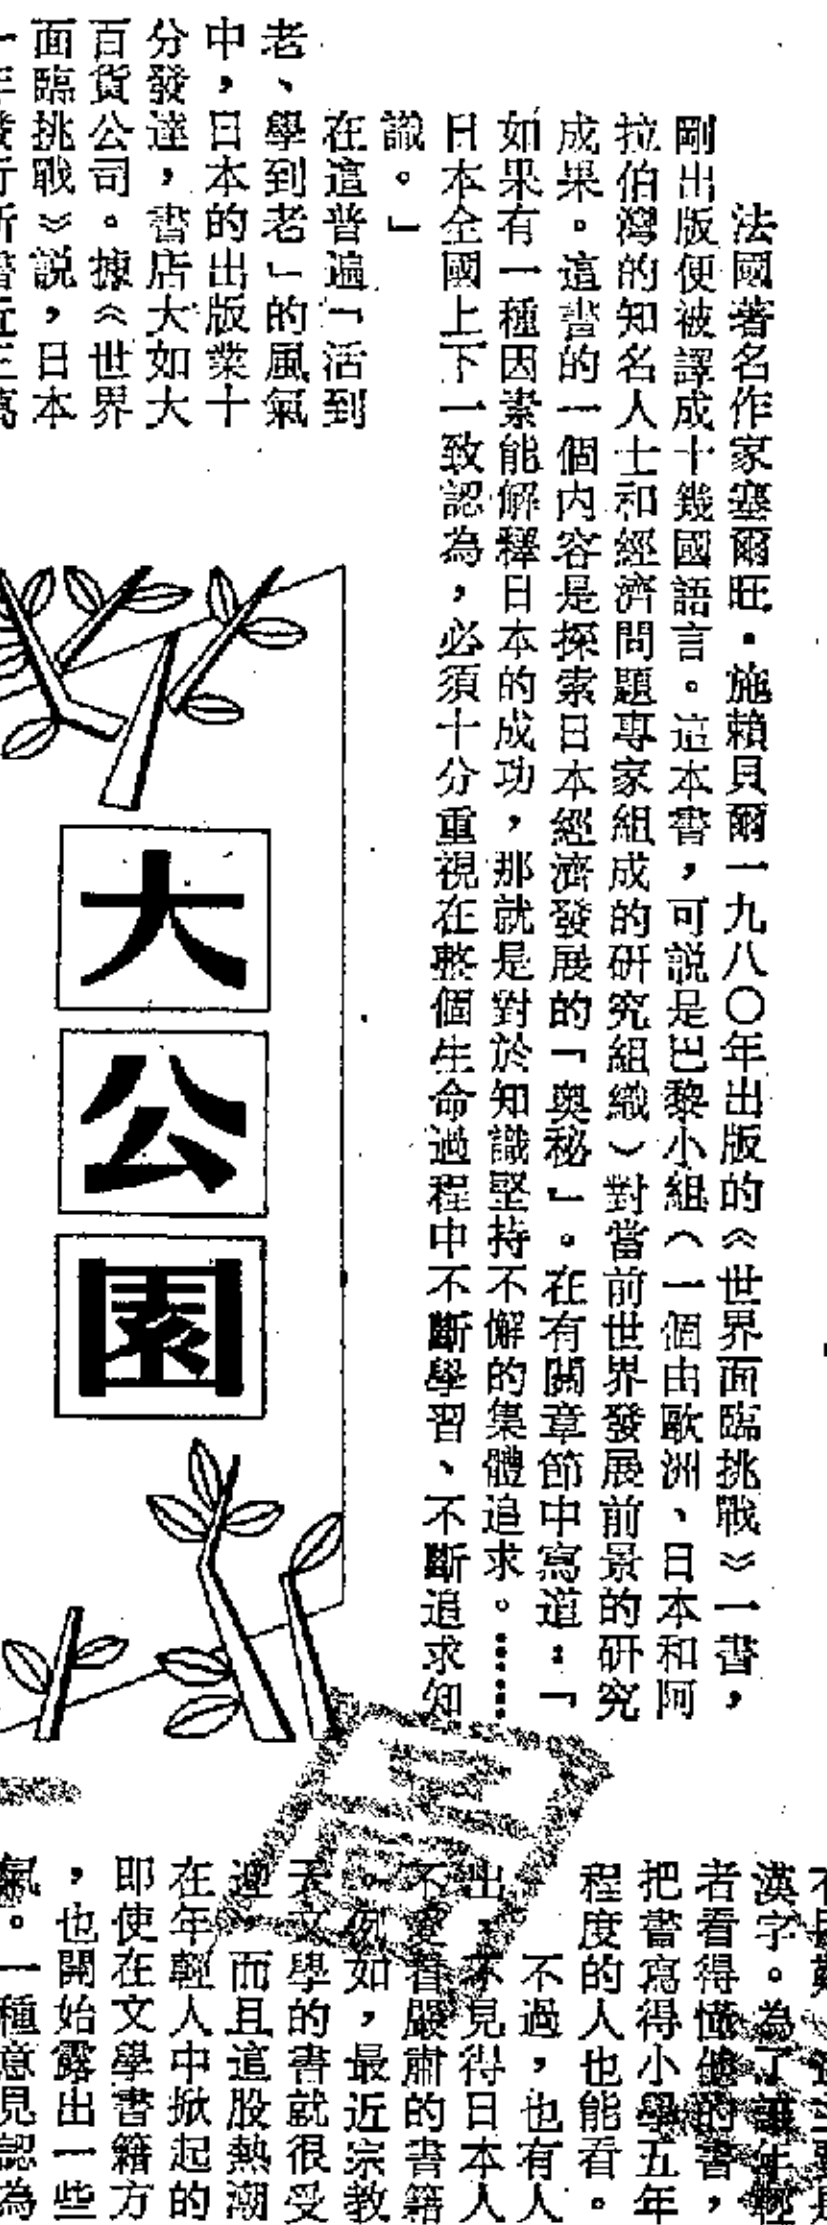 法國著名作家塞爾旺・施賴貝爾一九八〇年出版的《世界面臨挑戰》一書，
剛出版便被譯成十幾國語言。這本書，可説是巴黎小組（一個由歐洲、日本和阿
拉伯灣的知名人士和經濟問題專家組成的研究組織）對當前世界發展前景的研究
成果。這書的一個内容是探索日本經濟發展的「奥秘」。在有關章節中寫道：「
如果有一種因素能解釋日本的成功，那就是對於知識堅持不懈的集體追求。……
日本全國上下一致認為，必須十分重視在整個生命過程中不斷學習、不斷追求知
識。」
在這普遍「活到
老、學到老」的風氣
中，日本的出版業十
分發達，書店大如大
百貨公司。據《世界
面臨挑戰》説，日本
一年發行新書近三萬
大公園
漢字。為了讓年輕
者看得懂他的書，
把書寫得小學五年
程度的人也能看。
不過，也有人
出，不見得日本人
不愛看嚴肅的書籍
。例如，最近宗教
天文學的書就很受
迎，而且這股熱潮
在年輕人中掀起的
即使在文學書籍方
，也開始露出一些
氣。一種意見認為